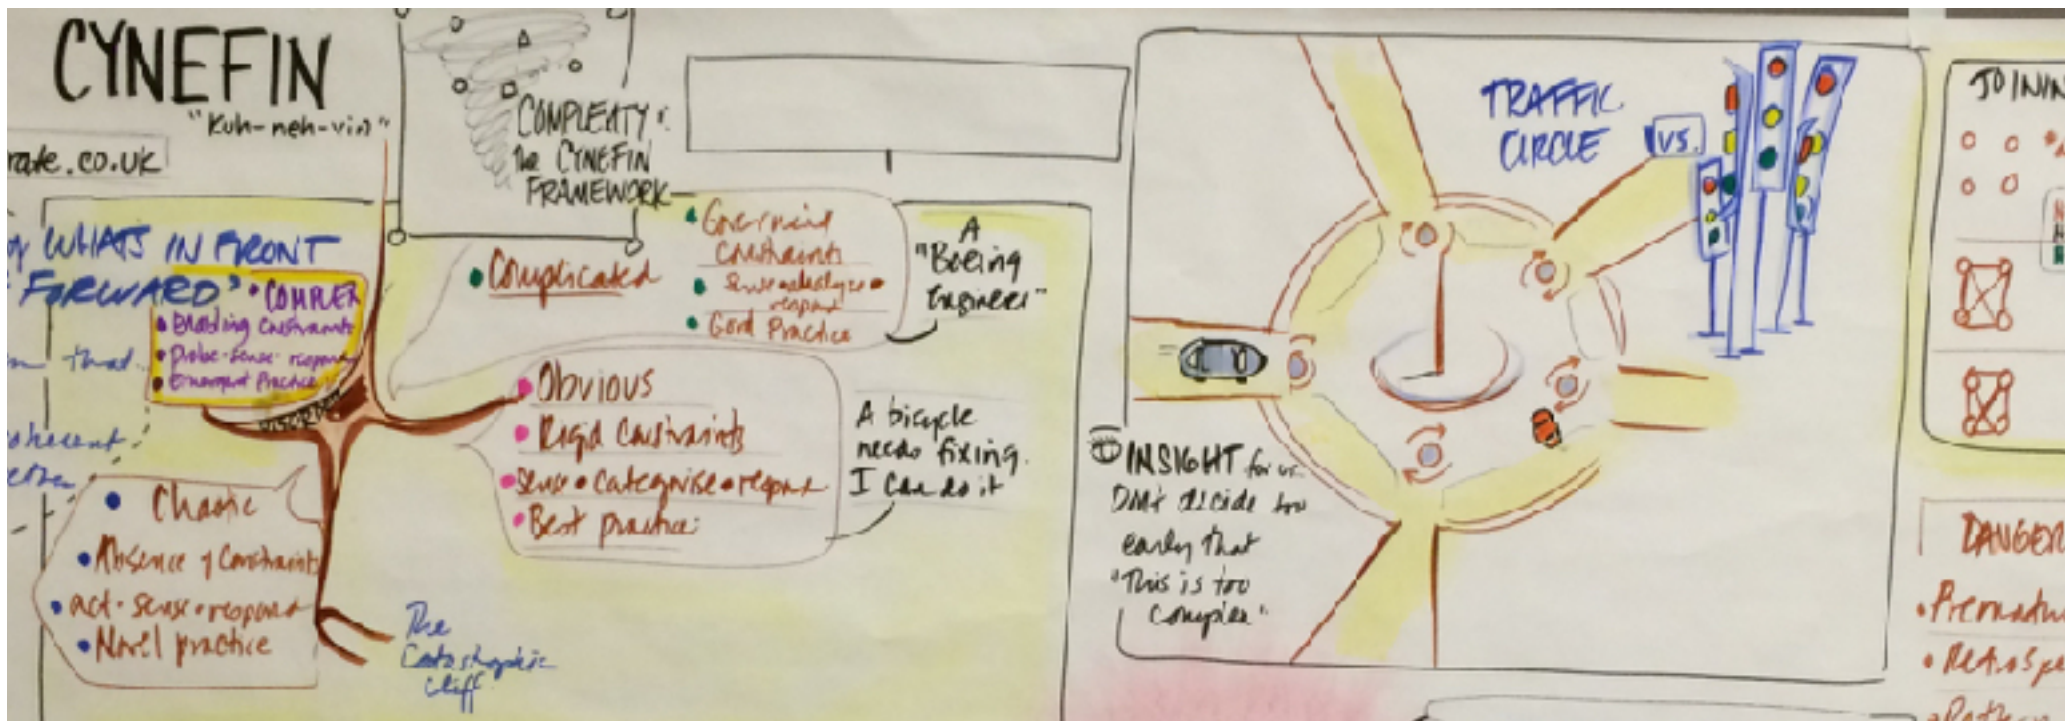 CYNEFIN
"Kuh-neh-vin"
rate.co.uk
COMPLEXITY &
the CYNEFIN
FRAMEWORK
WHATS IN FRONT
FORWARD"
• COMPLEX
• Enabling Constraints
• Probe-sense-respond
• Emergent Practice
that
coherent
DISORDER
• Complicated
• Governing
Constraints
• Sense•analyze•
respond
• Good Practice
A
"Boeing
Engineer"
• Obvious
• Rigid Constraints
• Sense•categorise•respond
• Best practice
A bicycle
needs fixing.
I can do it
• Chaotic
• Absence of Constraints
• act•sense•respond
• Novel practice
The
Catastrophic
Cliff
TRAFFIC
CIRCLE
VS.
INSIGHT for us
Don't decide too
early that
"This is too
complex"
JOININ
DANGER
• Prematu
• Retrospe